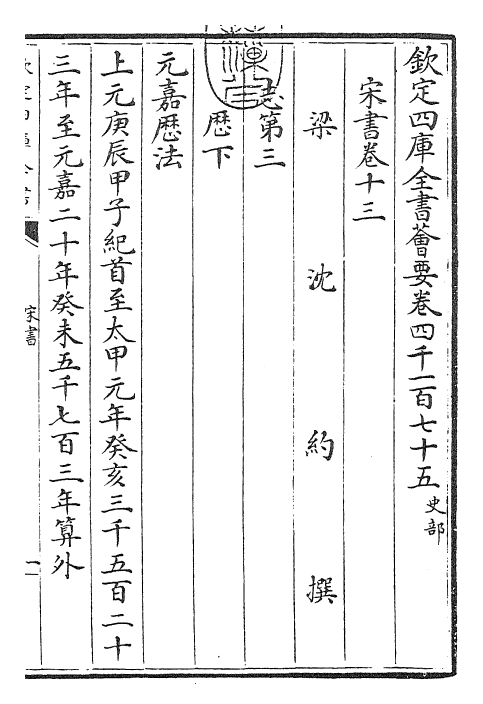 欽定四庫全書薈要卷四千一百七十五 史部
宋書卷十三
梁沈約撰
志第三
歴下
元嘉歴法
上元庚辰甲子紀首至太甲元年癸亥三千五百二十
三年至元嘉二十年癸未五千七百三年算外
宋書
一